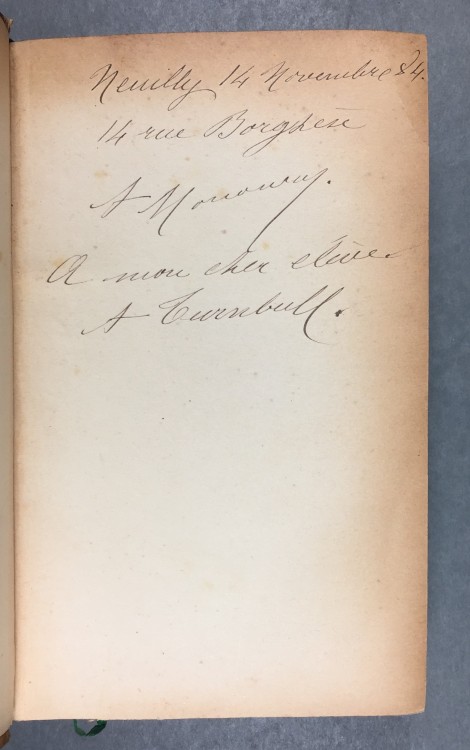 Neuilly 14 Novembre 84.
14 rue Borghèse
A
A mon cher elève
A Turnbull.